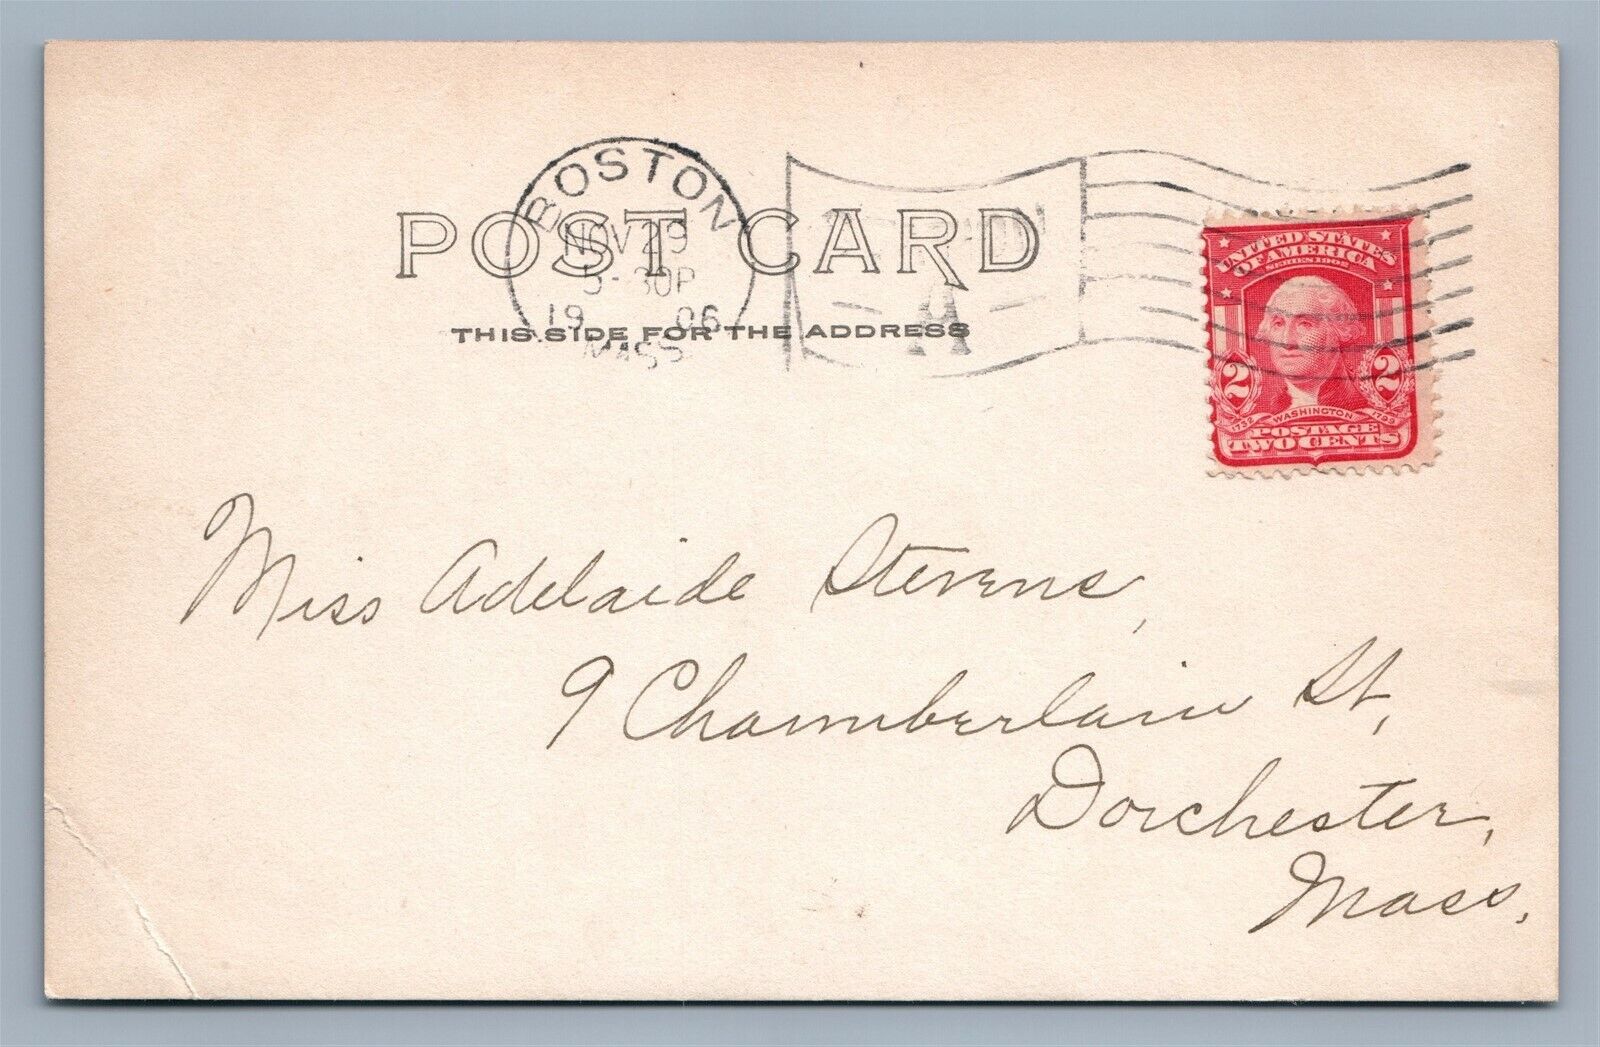 BOSTON
NOV 29
5-30P
19 06
MASS
POST CARD
THIS SIDE FOR THE ADDRESS
A
UNITED STATES
OF AMERICA
SERIES 1902
2 2
1732 WASHINGTON 1799
POSTAGE
TWO CENTS
Miss Adelaide Stevens,
9 Chamberlain St,
Dorchester,
Mass.